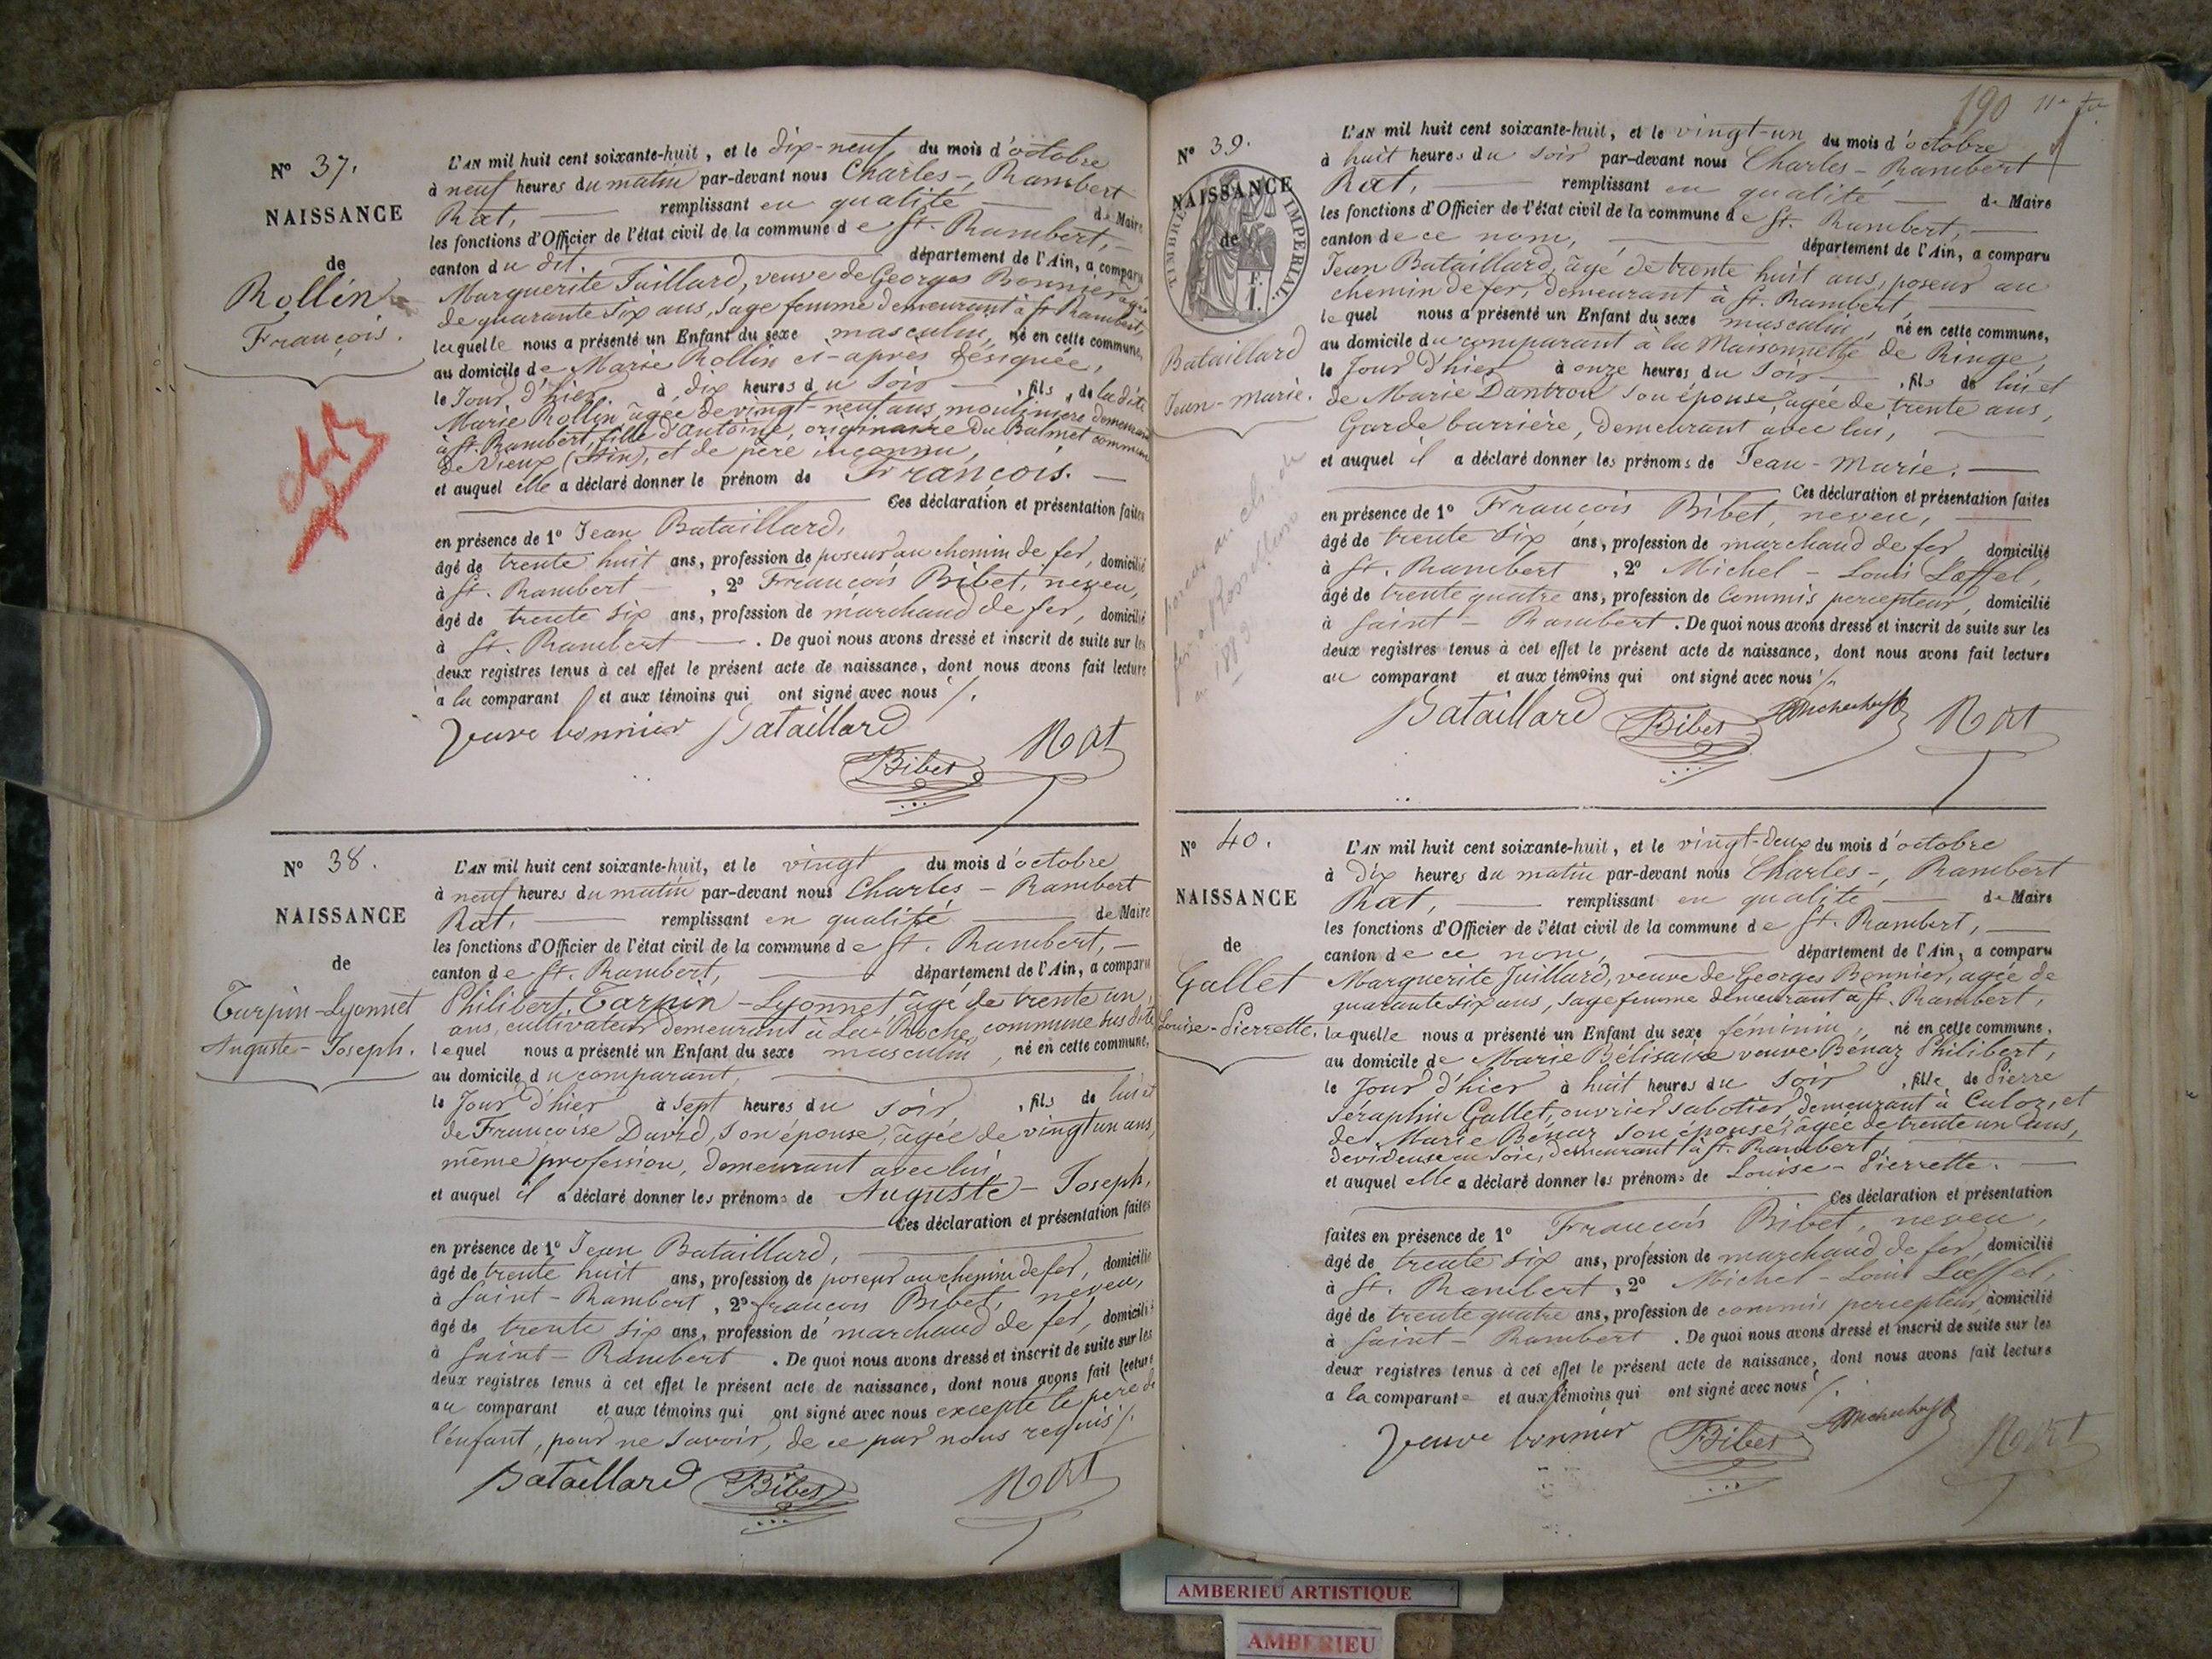 N° 37.
NAISSANCE
de
Rollin
François.
L'AN mil huit cent soixante-huit, et le dix-neuf du mois d'octobre
à neuf heures du matin par-devant nous Charles-, Rambert
Rat, remplissant en qualité de Maire
les fonctions d'Officier de l'état civil de la commune de St. Rambert, —
canton du dit. département de l'Ain, a comparu
Marguerite Juillard, veuve de Georges Bonnier agée
de quarante six ans, sage femme demeurant à St Rambert,
laquelle nous a présenté un Enfant du sexe masculin, né en cette commune,
au domicile de Marie Rollin ci-après désignée,
le Jour d'hier. à dix heures du soir — , fils de la dite
Marie Rollin agée de vingt-neuf ans, moulinière demeurant
à St. Rambert, fille d'antoine, originaire du Balmet commune
de Vieux (Ain), et de père inconnu,
et auquel elle a déclaré donner le prénom de François. —
Ces déclaration et présentation faites
en présence de 1° Jean Bataillard,
âgé de trente huit ans, profession de poseur au chemin de fer, domicilié
à St. Rambert , 2° François Bibet, neveu,
âgé de trente six ans, profession de marchand de fer, domicilié
à St. Rambert — . De quoi nous avons dressé et inscrit de suite sur les
deux registres tenus à cet effet le présent acte de naissance, dont nous avons fait lecture
à la comparant et aux témoins qui ont signé avec nous ./.
Veuve bonnier Bataillard
Bibet Rat
N° 38.
NAISSANCE
de
Turpin-Lyonnet
Auguste-Joseph.
L'AN mil huit cent soixante-huit, et le vingt du mois d'octobre
à neuf heures du matin par-devant nous Charles - Rambert
Rat, remplissant en qualité de Maire
les fonctions d'Officier de l'état civil de la commune de St. Rambert, —
canton de St. Rambert, département de l'Ain, a comparu
Philibert Tarpin-Lyonnet, âgé de trente un
ans, cultivateur demeurant à La Roche commune sus dite
lequel nous a présenté un Enfant du sexe masculin, né en cette commune,
au domicile du comparant,
le Jour d'hier à sept heures du soir , fils de lui et
de Françoise David, son épouse, âgée de vingt un ans,
même profession, demeurant avec lui,
et auquel il a déclaré donner les prénoms de Auguste - Joseph,
Ces déclaration et présentation faites
en présence de 1° Jean Bataillard,
âgé de trente huit ans, profession de poseur au chemin de fer, domicilié
à Saint-Rambert , 2° françois Bibet, neveu,
âgé de trente six ans, profession de marchand de fer, domicilié
à Saint-Rambert . De quoi nous avons dressé et inscrit de suite sur les
deux registres tenus à cet effet le présent acte de naissance, dont nous avons fait lecture
au comparant et aux témoins qui ont signé avec nous excepté le père de
l'enfant, pour ne savoir, de ce par nous requis ./.
Bataillard Bibet Rat
190 11e
N° 39.
NAISSANCE
de
TIMBRE IMPERIAL
F.
1.
Bataillard
Jean-Marie.
L'AN mil huit cent soixante-huit, et le vingt-un du mois d'octobre
à huit heures du soir par-devant nous Charles-Rambert
Rat, — remplissant en qualité — de Maire
les fonctions d'Officier de l'état civil de la commune de St. Rambert, —
canton de ce nom, département de l'Ain, a comparu
Jean Bataillard, âgé de trente huit ans, poseur au
chemin de fer, demeurant à St. Rambert,
lequel nous a présenté un Enfant du sexe masculin, né en cette commune,
au domicile du comparant à la Maisonnette de Ringe,
le Jour d'hier à onze heures du Soir — , fils de lui et
de Marie Dantrou son épouse, agée de trente ans,
Garde barrière, demeurant avec lui,
et auquel il a déclaré donner les prénoms de Jean-Marie. —
Ces déclaration et présentation faites
en présence de 1° François Bibet, neveu,
âgé de trente six ans, profession de marchand de fer domicilié
à St. Rambert , 2° Michel - Louis Lœffel,
âgé de trente quatre ans, profession de Commis percepteur, domicilié
à Saint-Rambert . De quoi nous avons dressé et inscrit de suite sur les
deux registres tenus à cet effet le présent acte de naissance, dont nous avons fait lecture
au comparant et aux témoins qui ont signé avec nous ./.
Bataillard Bibet Rat
N° 40.
NAISSANCE
de
Gallet
Louise-Pierrette.
L'AN mil huit cent soixante-huit, et le vingt-deux du mois d'octobre
à dix heures du matin par-devant nous Charles-, Rambert
Rat, — remplissant en qualité — de Maire
les fonctions d'Officier de l'état civil de la commune de St. Rambert, —
canton de ce nom, département de l'Ain, a comparu
Marguerite Juillard, veuve de Georges Bonnier, agée de
quarante six ans, sage femme demeurant à St. Rambert,
laquelle nous a présenté un Enfant du sexe féminin, né en cette commune,
au domicile de Marie Bélisaire veuve Bénaz Philibert,
le Jour d'hier à huit heures du soir , fille de Pierre
Seraphin Gallet, ouvrier sabotier, demeurant à Culoz, et
de Marie Bénaz son épouse, âgée de trente un ans,
devideuse en soie, demeurant à St. Rambert
et auquel elle a déclaré donner les prénoms de Louise-Pierrette. —
Ces déclaration et présentation
faites en présence de 1° François Bibet, neveu,
âgé de trente six ans, profession de marchand de fer, domicilié
à St. Rambert , 2° Michel-Louis Lœffel,
âgé de trente quatre ans, profession de commis percepteur, domicilié
à Saint-Rambert . De quoi nous avons dressé et inscrit de suite sur les
deux registres tenus à cet effet le présent acte de naissance, dont nous avons fait lecture
a la comparante et aux témoins qui ont signé avec nous ./.
Veuve bonnier Bibet Rat
AMBERIEU ARTISTIQUE
AMBERIEU